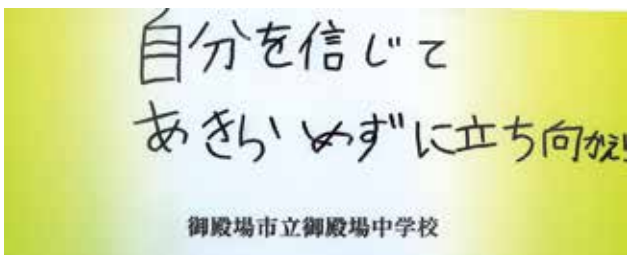 自分を信じて
あきらめずに立ち向かえ!
御殿場市立御殿場中学校